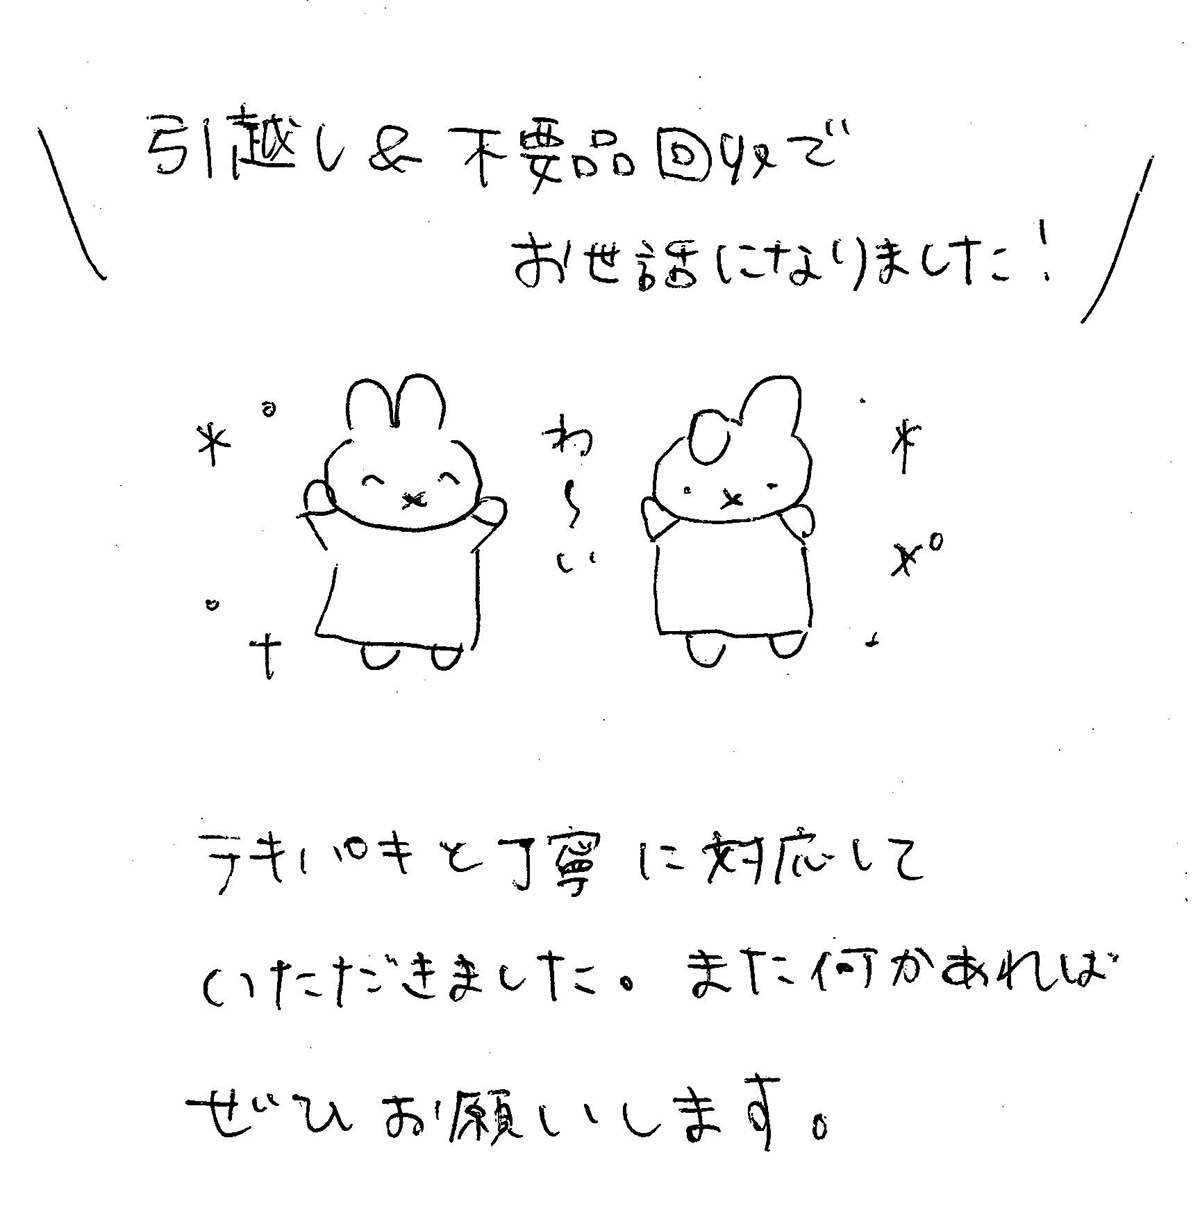 引越し & 不要品回収で
お世話になりました!
わ〜い
テキパキと丁寧に対応して
いただきました。また何かあれば
ぜひお願いします。